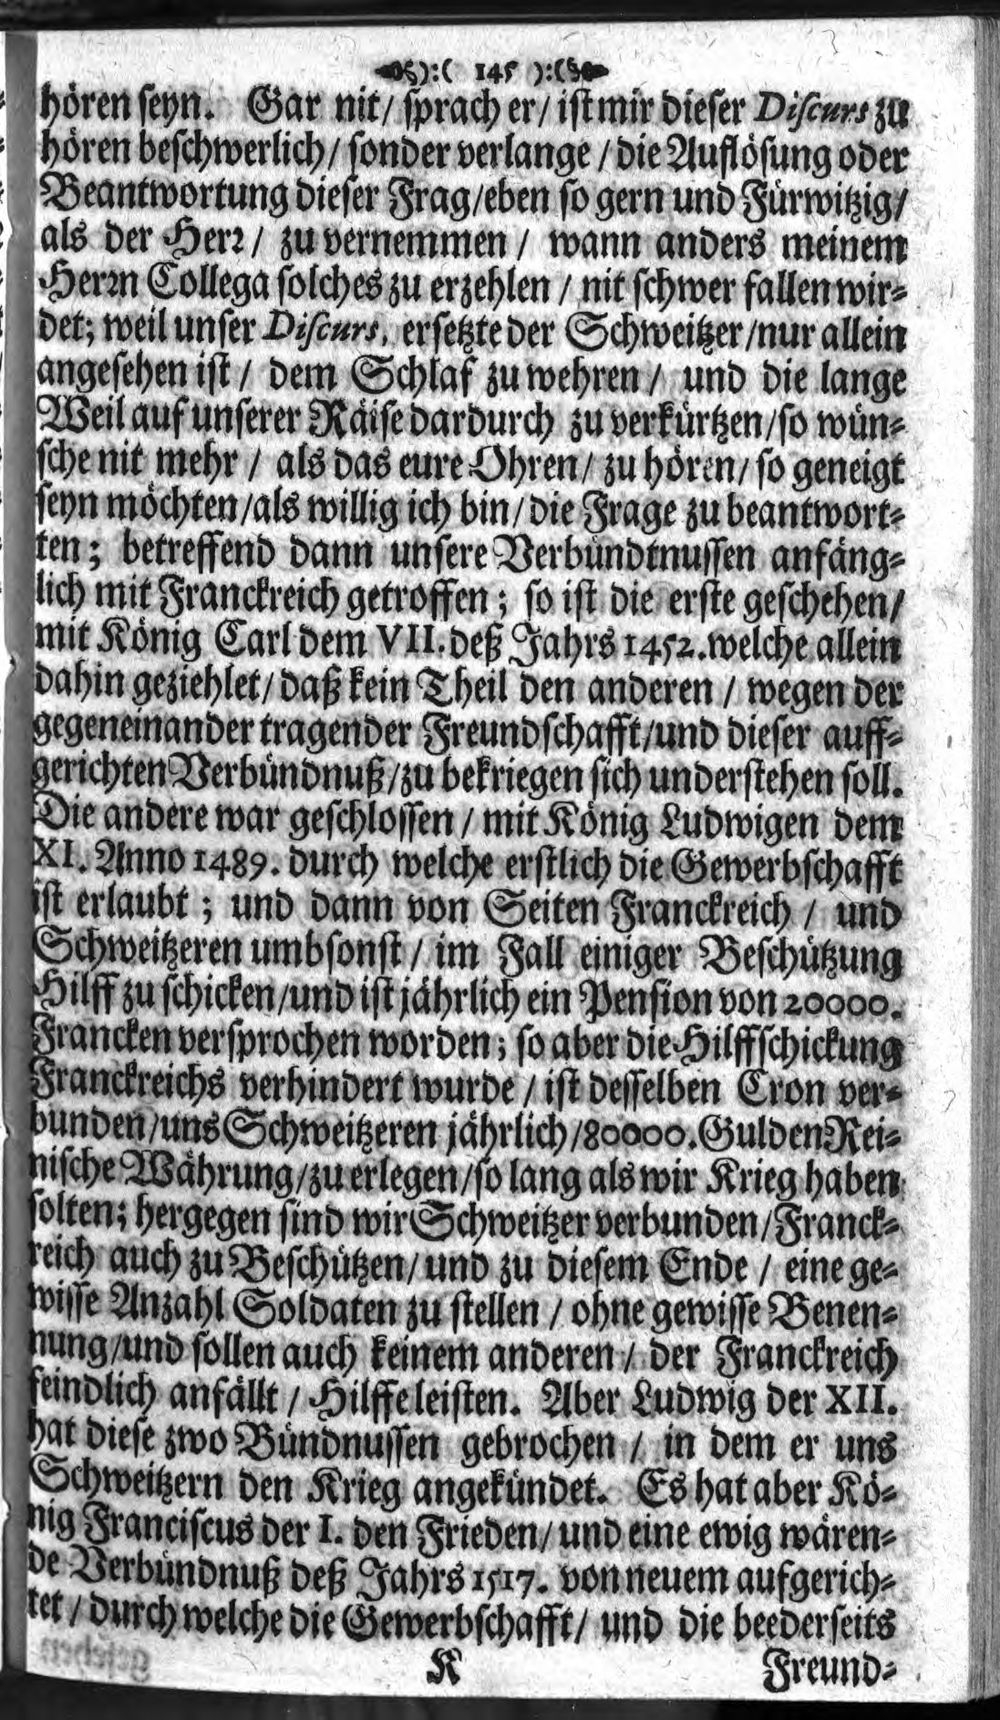 ):( 145 ):(
hören seyn. Gar nit/ sprach er/ ist mir dieser Discurs zu
hören beschwerlich/ sonder verlange / die Auflösung oder
Beantwortung dieser Frag/eben so gern und Fürwitzig/
als der Herr / zu vernemmen / wann anders meinem
Herrn Collega solches zu erzehlen / nit schwer fallen wir-
det; weil unser Discurs, ersetzte der Schweitzer/nur allein
angesehen ist / dem Schlaf zu wehren / und die lange
Weil auf unserer Räise dardurch zu verkürtzen/so wün-
sche nit mehr / als das eure Ohren/ zu hören/ so geneigt
seyn möchten/als willig ich bin/ die Frage zu beantwort-
ten; betreffend dann unsere Verbündtnussen anfäng-
lich mit Franckreich getroffen; so ist die erste geschehen/
mit König Carl dem VII. deß Jahrs 1452. welche allein
dahin geziehlet/ daß kein Theil den anderen / wegen der
gegeneinander tragender Freundschafft/und dieser auff-
gerichten Verbündnuß/zu bekriegen sich understehen soll.
Die andere war geschlossen / mit König Ludwigen dem
XI. Anno 1489. durch welche erstlich die Gewerbschafft
ist erlaubt; und dann von Seiten Franckreich / und
Schweitzeren umbsonst / im Fall einiger Beschützung
Hilff zu schicken/und ist jährlich ein Pension von 20000.
Francken versprochen worden; so aber die Hilffschickung
Franckreichs verhindert wurde / ist desselben Cron ver-
bunden/uns Schweitzeren jährlich/80000. Gulden Rei-
nische Währung/zu erlegen/so lang als wir Krieg haben
solten; hergegen sind wir Schweitzer verbunden/Franck-
reich auch zu Beschützen/ und zu diesem Ende / eine ge-
wisse Anzahl Soldaten zu stellen / ohne gewisse Benen-
nung/und sollen auch keinem anderen / der Franckreich
feindlich anfällt / Hilffe leisten. Aber Ludwig der XII.
hat diese zwo Bündnussen gebrochen / in dem er uns
Schweitzern den Krieg angekündet. Es hat aber Kö-
nig Franciscus der I. den Frieden/ und eine ewig wären-
de Verbündnuß deß Jahrs 1517. von neuem aufgerich-
tet / durch welche die Gewerbschafft/ und die beederseits
K Freund-